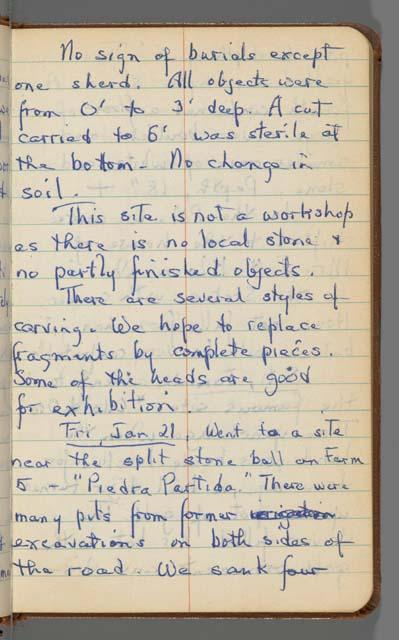 No sign of burials except
one sherd. All objects were
from 0' to 3' deep. A cut
carried to 6' was sterile at
the bottom. No change in
soil.
This site is not a workshop
as there is no local stone &
no partly finished objects.
There are several styles of
carving. We hope to replace
fragments by complete pieces.
Some of the heads are good
for exhibition.
Fri Jan 21 Went to a site
near the split stone ball on Farm
5 - "Piedra Partida." There were
many pits from former
excavations on both sides of
the road. We sank four